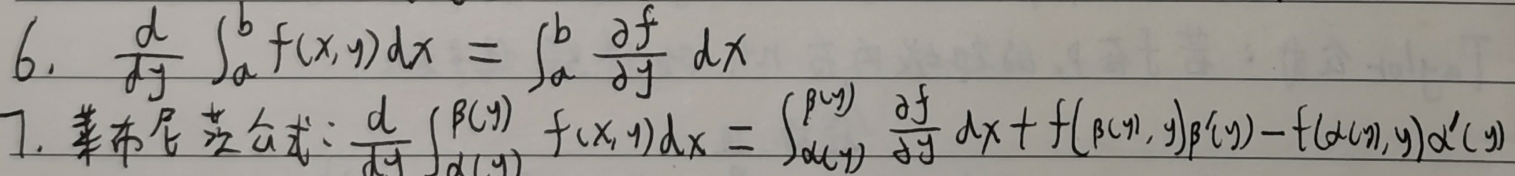 6. d/dy ∫_a^b f(x,y)dx = ∫_a^b ∂f/∂y dx
7. 莱布尼茨公式: d/dy ∫_{α(y)}^{β(y)} f(x,y)dx = ∫_{α(y)}^{β(y)} ∂f/∂y dx + f(β(y),y)β'(y) - f(α(y),y)α'(y)